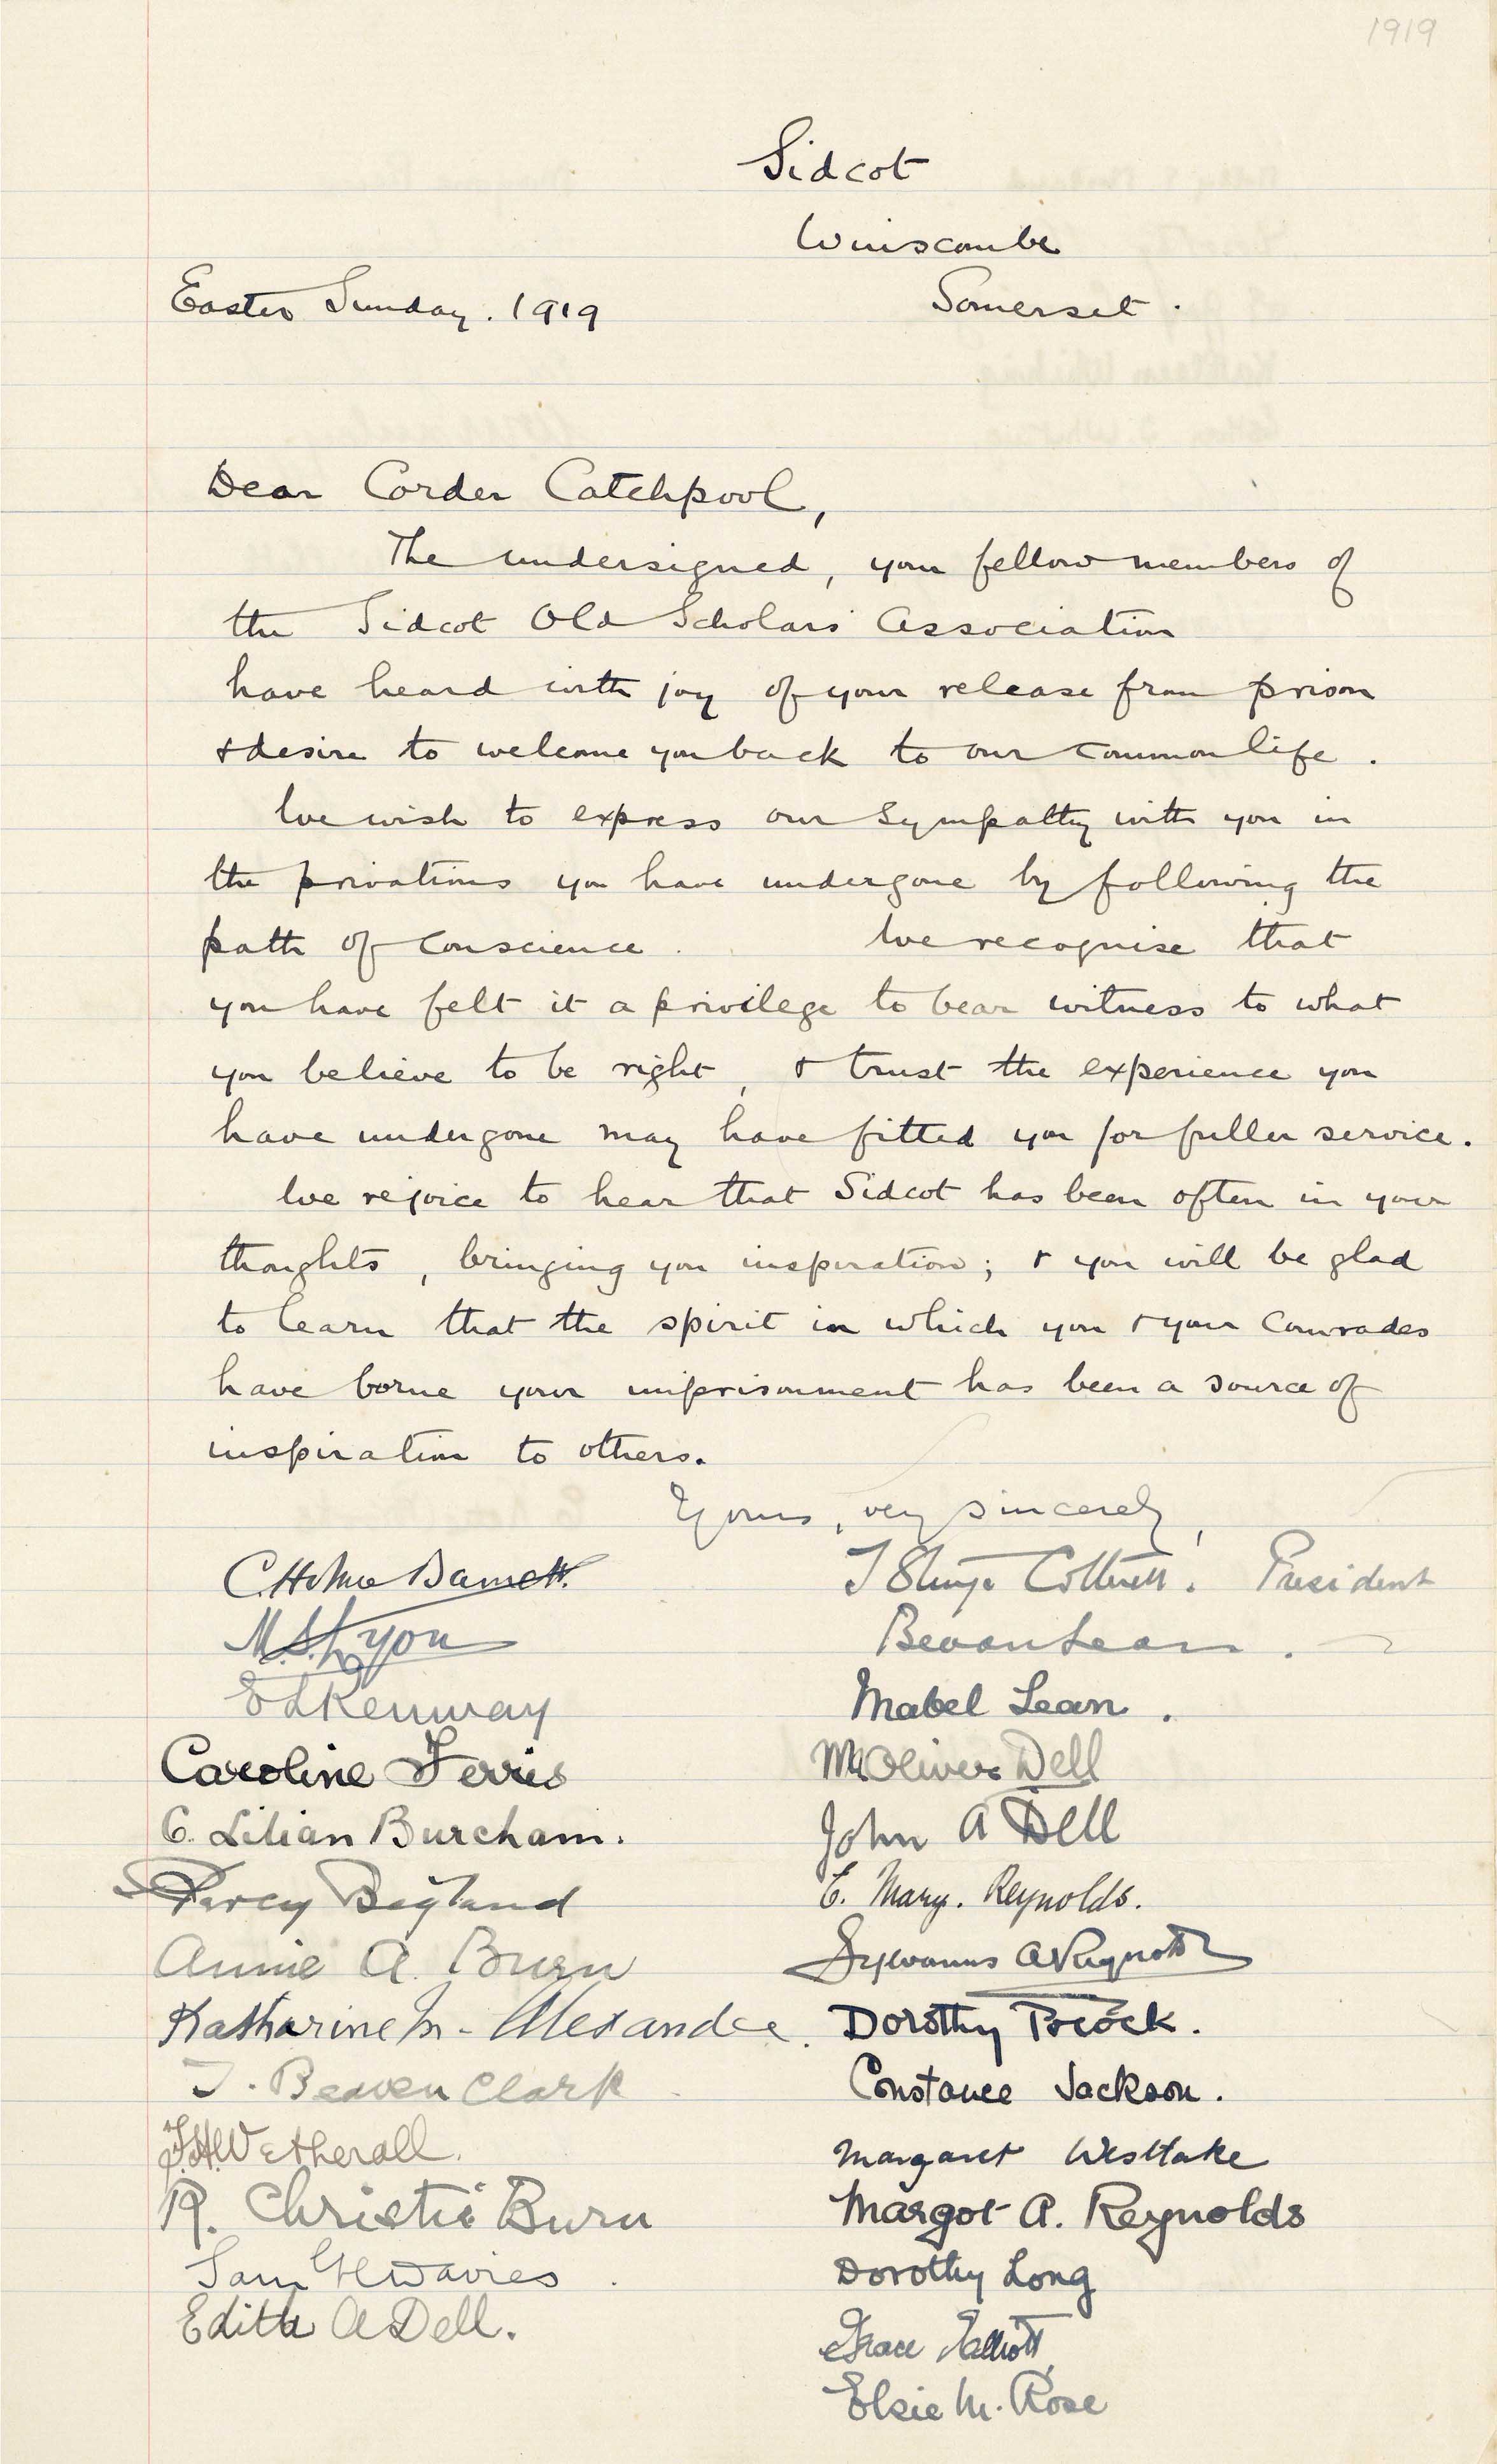 1919
Sidcot
Winscombe
Somerset.
Easter Sunday. 1919
Dear Corder Catchpool,
The undersigned, your fellow members of
the Sidcot Old Scholars' Association
have heard with joy of your release from prison
& desire to welcome you back to our common life.
We wish to express our sympathy with you in
the privations you have undergone by following the
path of conscience. We recognise that
you have felt it a privilege to bear witness to what
you believe to be right, & trust the experience you
have undergone may have fitted you for fuller service.
We rejoice to hear that Sidcot has been often in your
thoughts, bringing you inspiration; & you will be glad
to learn that the spirit in which you & your comrades
have borne your imprisonment has been a source of
inspiration to others.
Yours, very sincerely,
President
Bevan Lean.
Mabel Lean.
Oliver Dell
John A Dell
E. Mary. Reynolds.
Sylvanus A Reynolds
Dorothy Pocock.
Constance Jackson.
Margaret Westlake
Margot A. Reynolds
Dorothy Long
Grace Elliott
Elsie M. Rose
Barnett.
M.S. Lyon
E L Kenway
Caroline Ferris
C. Lilian Burcham.
Percy Bigland
Annie A. Burn
Katharine M. Alexander.
J. Beaven Clark
Wetherall.
R. Christie Burn
Sam Davies.
Edith A Dell.